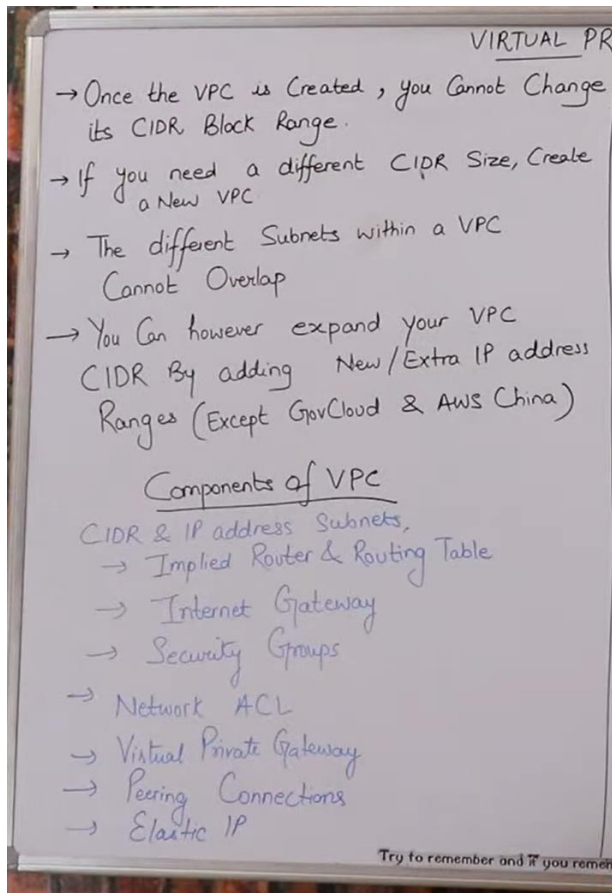 VIRTUAL PR
→ Once the VPC is Created, you Cannot Change
its CIDR Block Range.
→ If you need a different CIDR Size, Create
a New VPC
→ The different Subnets within a VPC
Cannot Overlap
→ You Can however expand your VPC
CIDR By adding New/Extra IP address
Ranges (Except GovCloud & AWS China)
Components of VPC
CIDR & IP address Subnets,
→ Implied Router & Routing Table
→ Internet Gateway
→ Security Groups
→ Network ACL
→ Virtual Private Gateway
→ Peering Connections
→ Elastic IP
Try to remember and if you remem